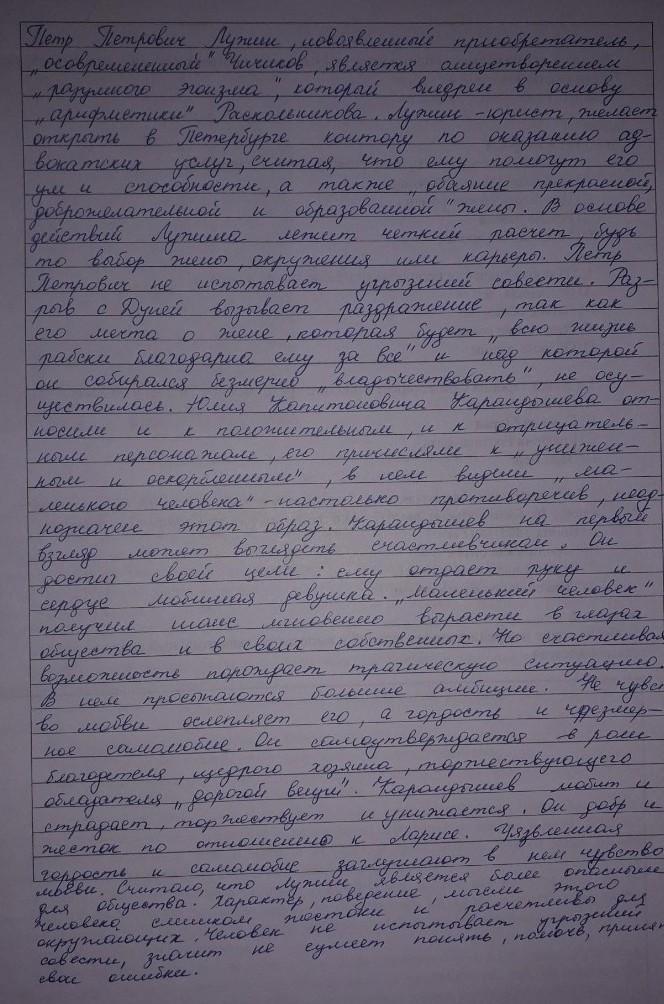 Петр Петрович Лужин, новоявленный приобретатель,
„осовремененный" Чичиков, является олицетворением
„разумного эгоизма", который внедрен в основу
„арифметики" Раскольникова. Лужин - юрист, желает
открыть в Петербурге контору по оказанию ад-
вокатских услуг, считая, что ему помогут его
ум и способности, а также „обаяние прекрасной,
доброжелательной и образованной" жены. В основе
действий Лужина лежит четкий расчет, будь
то выбор жены, окружения или карьеры. Петр
Петрович не испытывает угрызений совести. Раз-
рыв с Дуней вызывает раздражение, так как
его мечта о жене, которая будет „всю жизнь
рабски благодарна ему за все" и над которой
он собирался безмерно „владычествовать", не осу-
ществилась. Юлия Капитоновича Карандышева от-
носили и к положительным, и к отрицатель-
ным персонажам, его причисляли к „унижен-
ным и оскорбленным", в нем видели „ма-
ленького человека" - настолько противоречив, неод-
нозначен этот образ. Карандышев на первый
взгляд может выглядеть счастливчиком. Он
достиг своей цели: ему отдает руку и
сердце любимая девушка. „Маленький человек"
получил шанс мгновенно вырасти в глазах
общества и в своих собственных. Но счастливая
возможность порождает трагическую ситуацию.
В нем просыпаются большие амбиции. Не чувст
во любви ослепляет его, а гордость и чрезмер-
ное самолюбие. Он самоутверждается в роли
благодетеля, щедрого хозяина, торжествующего
обладателя „дорогой вещи". Карандышев любит и
страдает, торжествует и унижается. Он добр и
жесток по отношению к Ларисе. Уязвленная
гордость и самолюбие заглушают в нем чувство
любви. Считаю, что Лужин является более опасным
для общества. Характер, поведение, мысли этого
человека слишком жестоки и расчетливы для
окружающих. Человек не испытывает угрызений
совести, значит не сумеет понять, помочь, принять
свои ошибки.